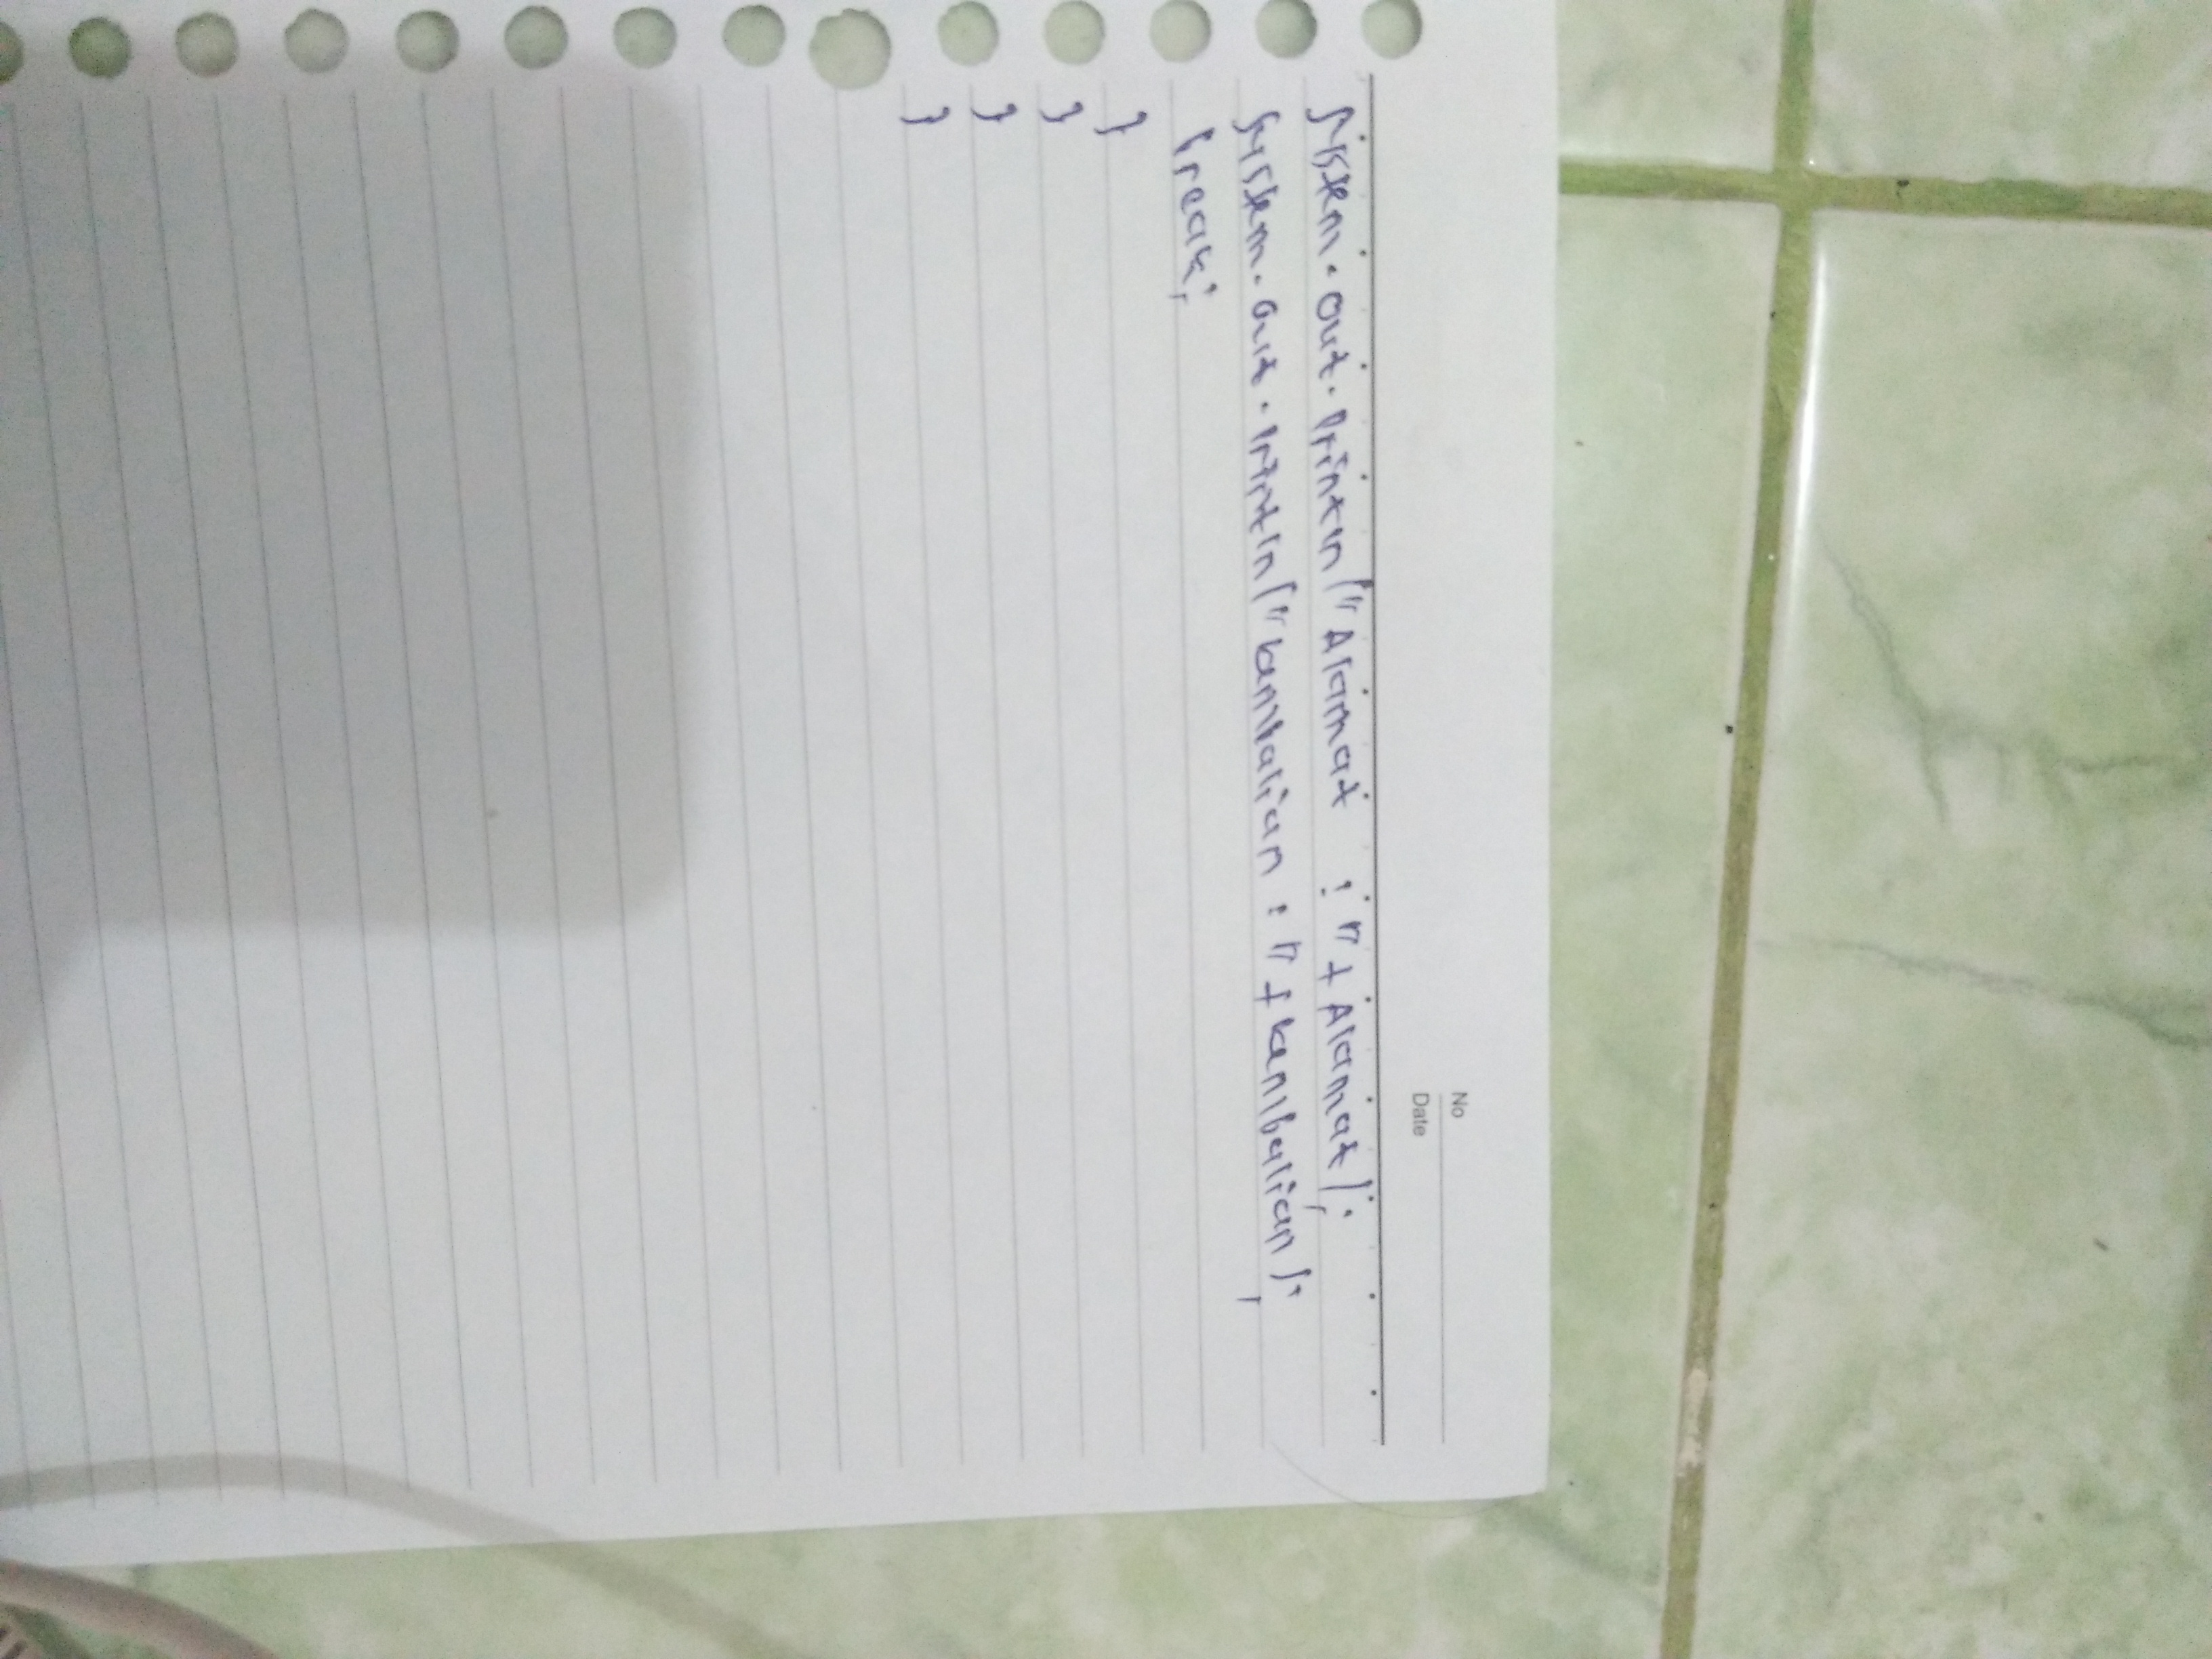 No
Date
System.out.println("Alamat : " + Alamat);
System.out.println("kembalian : " + kembalian);
break;
}
}
}
}